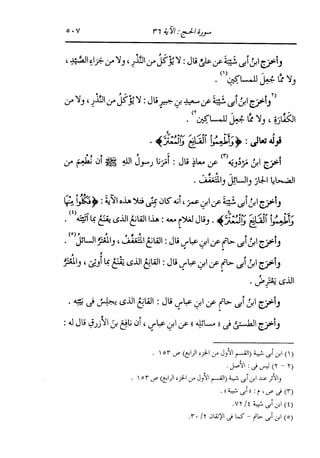 سورة الحج : الآية ٣٦ ٥٠٧
وأخرج ابنُ أبى شَيْبَةَ عن علىٍّ قال : لا يُؤْكَلُ من النَّذْرِ ، ولا من جزاءِ الصَّيْدِ ،
ولا ممَّا جُعِل للمساكينِ(١) .
(٢)وأخرَج ابنُ أبى شَيْبَةَ عن سعيدِ بنِ جبيرٍ قال : لا يُؤْكَلُ من النَّذْرِ ، ولا من
الكفَّارةِ ، ولا ممَّا جُعِل للمساكينِ(٢) .
قولُه تعالى : ﴿ وَأَطْعِمُوا۟ ٱلْقَانِعَ وَٱلْمُعْتَرَّ ﴾ .
أخرَج ابنُ مَرْدُويَه(٣) عن معاذٍ قال : أمَرَنا رسولُ اللهِ ﷺ أن نُطْعِمَ من
الضحايا الجارَ والسائلَ والمُتَعَفِّفَ .
وأخرَج ابنُ أبى شَيْبَةَ عن ابنِ عمرَ ، أنه كان بمِنًى فتلا هذه الآيةَ : ﴿ فَكُلُوا۟ مِنْهَا
وَأَطْعِمُوا۟ ٱلْقَانِعَ وَٱلْمُعْتَرَّ ﴾ . وقال لغلامٍ معه : هذا القانعُ الذى يقنَعُ بما آتيتَه(٤) .
وأخرَج ابنُ أبى حاتمٍ عن ابنِ عباسٍ قال : القانعُ المُتَعَفِّفُ ، والمُعْتَرُّ السائلُ(٥) .
وأخرَج ابنُ أبى حاتمٍ عن ابنِ عباسٍ قال : القانعُ الذى يَقْنَعُ بما أُوتِىَ ، والمُعْتَرُّ
الذى يَعْتَرِضُ .
وأخرَج ابنُ أبى حاتمٍ عن ابنِ عباسٍ قال : القانعُ الذى يجلِسُ فى بيتِه .
وأخرَج الطستىُّ فى « مسائلِه » عن ابنِ عباسٍ ، أن نافعَ بنَ الأزرقِ قال له :
(١) ابن أبى شيبة (القسم الأول من الجزء الرابع) ص ١٥٣ .
(٢ - ٢) ليس فى : الأصل .
والأثر عند ابن أبى شيبة (القسم الأول من الجزء الرابع) ص ١٥٣ .
(٣) فى ص ، م : « أبى شيبة » .
(٤) ابن أبى شيبة ٤/ ٧٢.
(٥) ابن أبى حاتم - كما فى الإتقان ٢/ ٣٠.